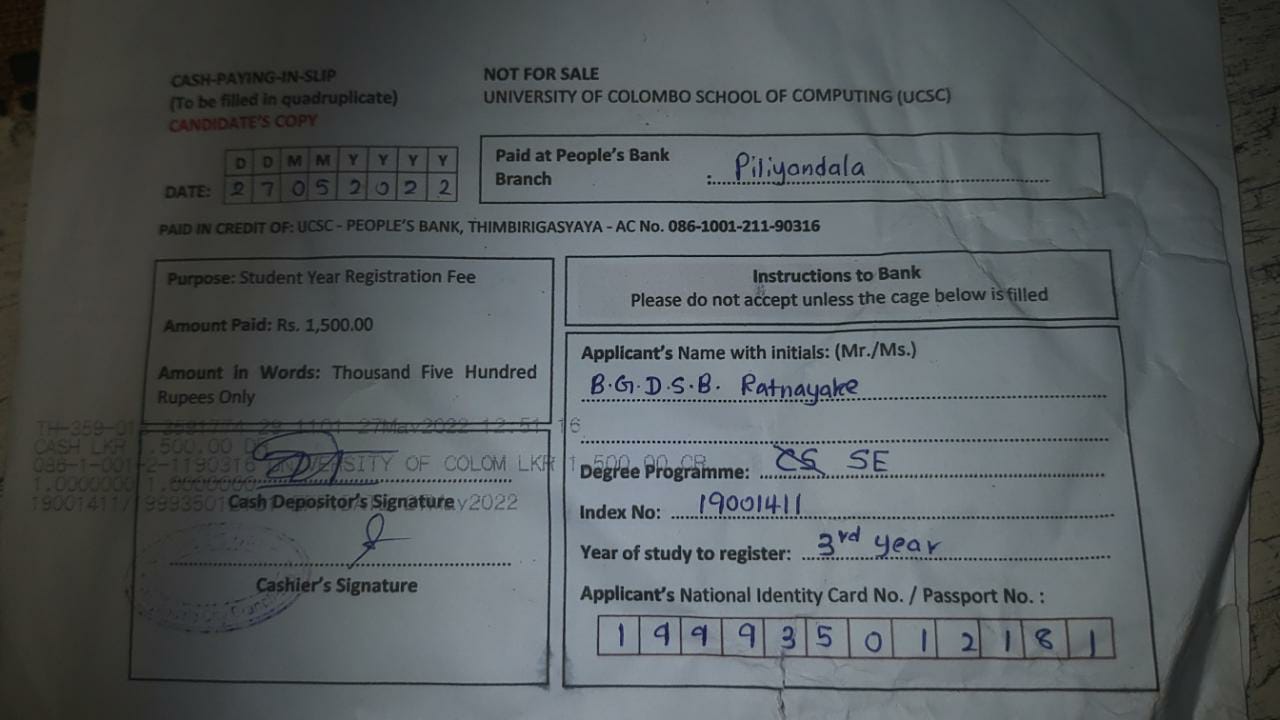 CASH-PAYING-IN-SLIP
(To be filled in quadruplicate)
CANDIDATE'S COPY
NOT FOR SALE
UNIVERSITY OF COLOMBO SCHOOL OF COMPUTING (UCSC)
D D M M Y Y Y Y
DATE: 2 7 0 5 2 0 2 2
Paid at People's Bank
Branch : Piliyandala
PAID IN CREDIT OF: UCSC - PEOPLE'S BANK, THIMBIRIGASYAYA - AC No. 086-1001-211-90316
Purpose: Student Year Registration Fee
Amount Paid: Rs. 1,500.00
Amount in Words: Thousand Five Hundred
Rupees Only
27May2022 12:51 16
CASH LKR
UNIVERSITY OF COLOM LKR 1,500.00 CR
Cash Depositor's Signature
Cashier's Signature
Instructions to Bank
Please do not accept unless the cage below is filled
Applicant's Name with initials: (Mr./Ms.)
B.G.D.S.B. Ratnayake
Degree Programme: CS SE
Index No: 19001411
Year of study to register: 3rd year
Applicant's National Identity Card No. / Passport No. :
1 9 9 9 3 5 0 1 2 1 8 1